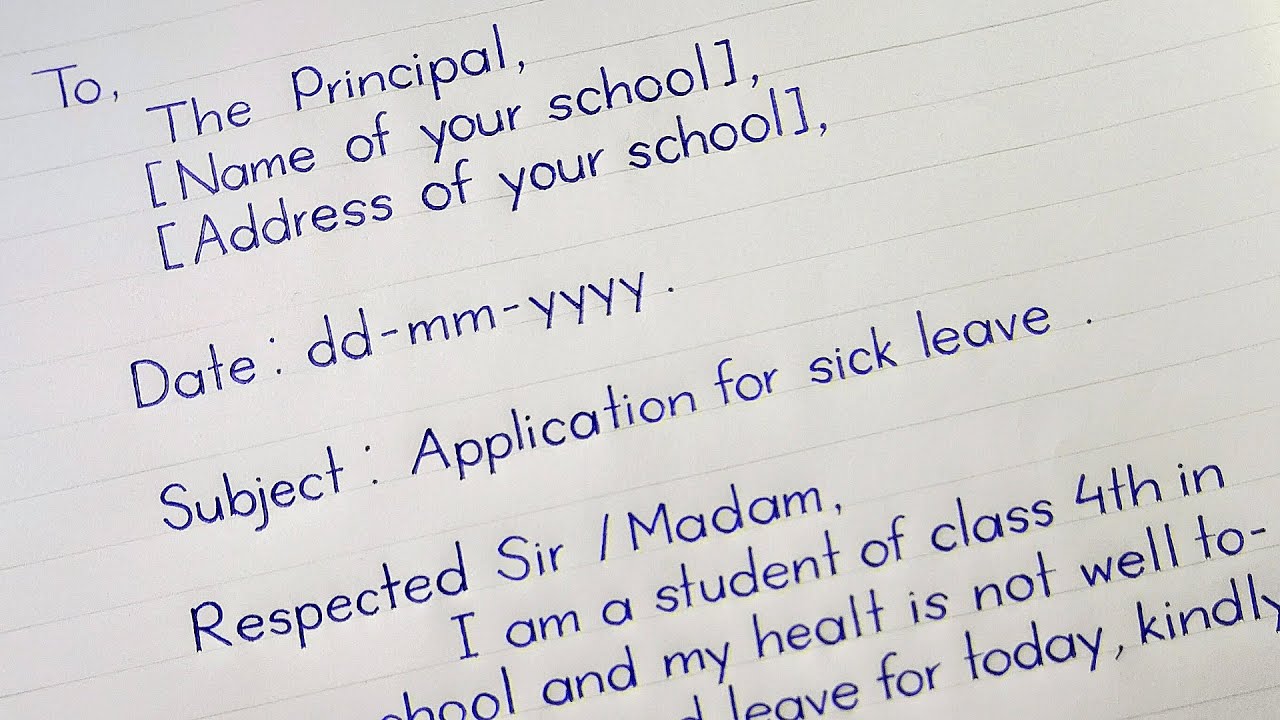 To,
The Principal,
[Name of your school],
[Address of your school],
Date : dd-mm-yyyy.
Subject : Application for sick leave .
Respected Sir / Madam,
I am a student of class 4th in
and my healt is not well to-
leave for today, kindly